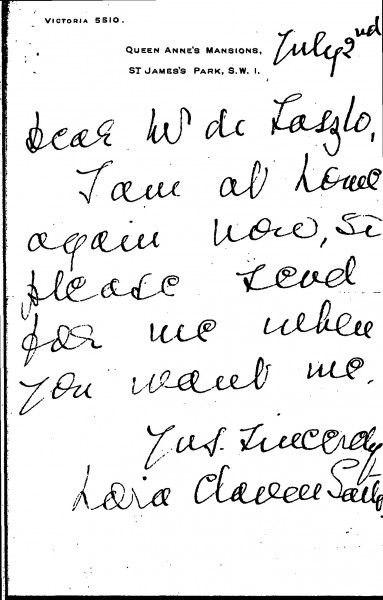 VICTORIA 5510.
QUEEN ANNE'S MANSIONS,
ST JAMES'S PARK, S.W. 1.
July 2nd
Dear Mr de Laszlo,
I am at home
again now, so
please send
for me when
you want me.
Yrs. Sincerely